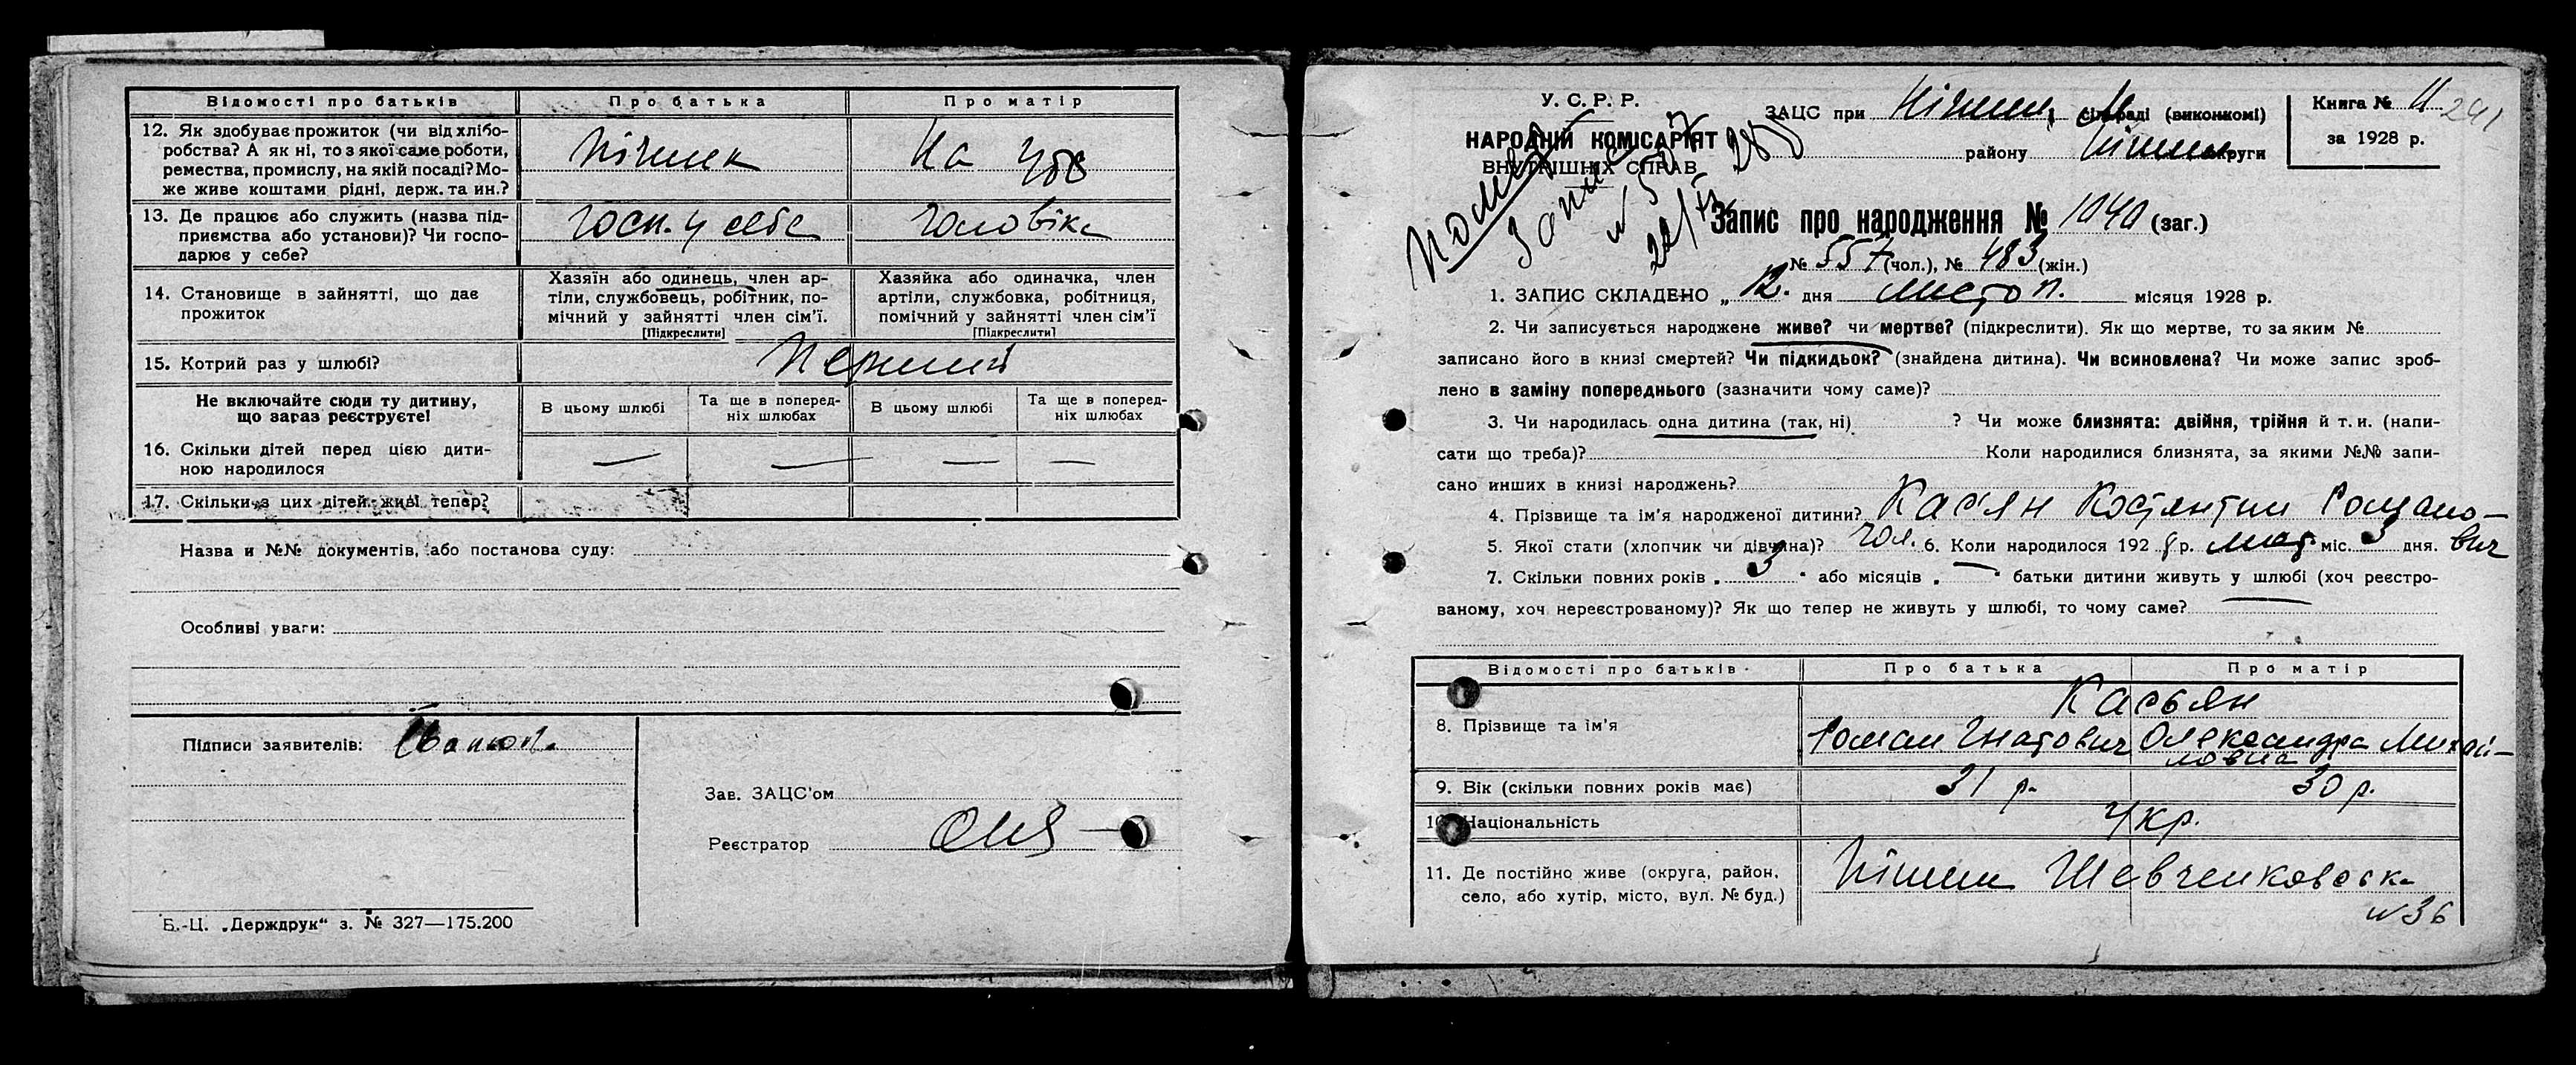 Відомості про батьків Про батька Про матір
12. Як здобуває прожиток (чи від хлібо-
робства? А як ні, то з якої саме роботи,
ремества, промислу, на якій посаді? Мо-
же живе коштами рідні, держ. та ин.?
На
13. Де працює або служить (назва під-
приємства або установи)? Чи госпо-
дарює у себе?
Госп. у себе
Чоловіка
14. Становище в зайнятті, що дає
прожиток
Хазяїн або одинець, член ар-
тіли, службовець, робітник, по-
мічний у зайнятті член сім'ї.
[Підкреслити]
Хазяйка або одиначка, член
артіли, службовка, робітниця,
помічний у зайнятті член сім'ї
[Підкреслити]
15. Котрий раз у шлюбі? Перший
Не включайте сюди ту дитину,
що зараз реєструєте!
В цьому шлюбі
Та ще в поперед-
ніх шлюбах
В цьому шлюбі
Та ще в поперед-
ніх шлюбах
16. Скільки дітей перед цією дити-
ною народилося — — — —
17. Скільки з цих дітей живі тепер?
Назва и №№ документів, або постанова суду:
Особливі уваги:
Підписи заявителів:
Зав. ЗАЦС'ом
Реєстратор
Б.-Ц. „Держдрук" з. № 327—175.200
У. С. Р. Р.
НАРОДНІЙ КОМІСАРІЯТ
ВНУТРІШНІХ СПРАВ
Помер
Запис
ЗАЦС при Ніжин. сільраді (виконкомі)
району Ніжин округи
Книга № 11
241
за 1928 р.
Запис про народження № 1040 (заг.)
№ 557 (чол.), № 483 (жін.)
1. ЗАПИС СКЛАДЕНО „ 12. дня листоп. місяця 1928 р.
2. Чи записується народжене живе? чи мертве? (підкреслити). Як що мертве, то за яким №
записано його в книзі смертей? Чи підкидьок? (знайдена дитина). Чи всиновлена? Чи може запис зроб-
лено в заміну попереднього (зазначити чому саме)?
3. Чи народилась одна дитина (так, ні) ? Чи може близнята: двійня, трійня й т. и. (напи-
сати що треба)? Коли народилися близнята, за якими №№ запи-
сано инших в книзі народжень?
4. Прізвище та ім'я народженої дитини? Кас'ян Костянтин Романо-
вич
5. Якої стати (хлопчик чи дівчина)? чол. 6. Коли народилося 1928 р. лист. міс. 3 дня.
7. Скільки повних років „ 3 " або місяців „ — " батьки дитини живуть у шлюбі (хоч реєстро-
ваному, хоч нереєстрованому)? Як що тепер не живуть у шлюбі, то чому саме?
Відомості про батьків Про батька Про матір
8. Прізвище та ім'я
Касьян
Роман Гнатович Олександра Михай-
ловна
9. Вік (скільки повних років має) 31 р. 30 р.
10. Національність Укр.
11. Де постійно живе (округа, район,
село, або хутір, місто, вул. № буд.)
Ніжин Шевченковська
№ 36